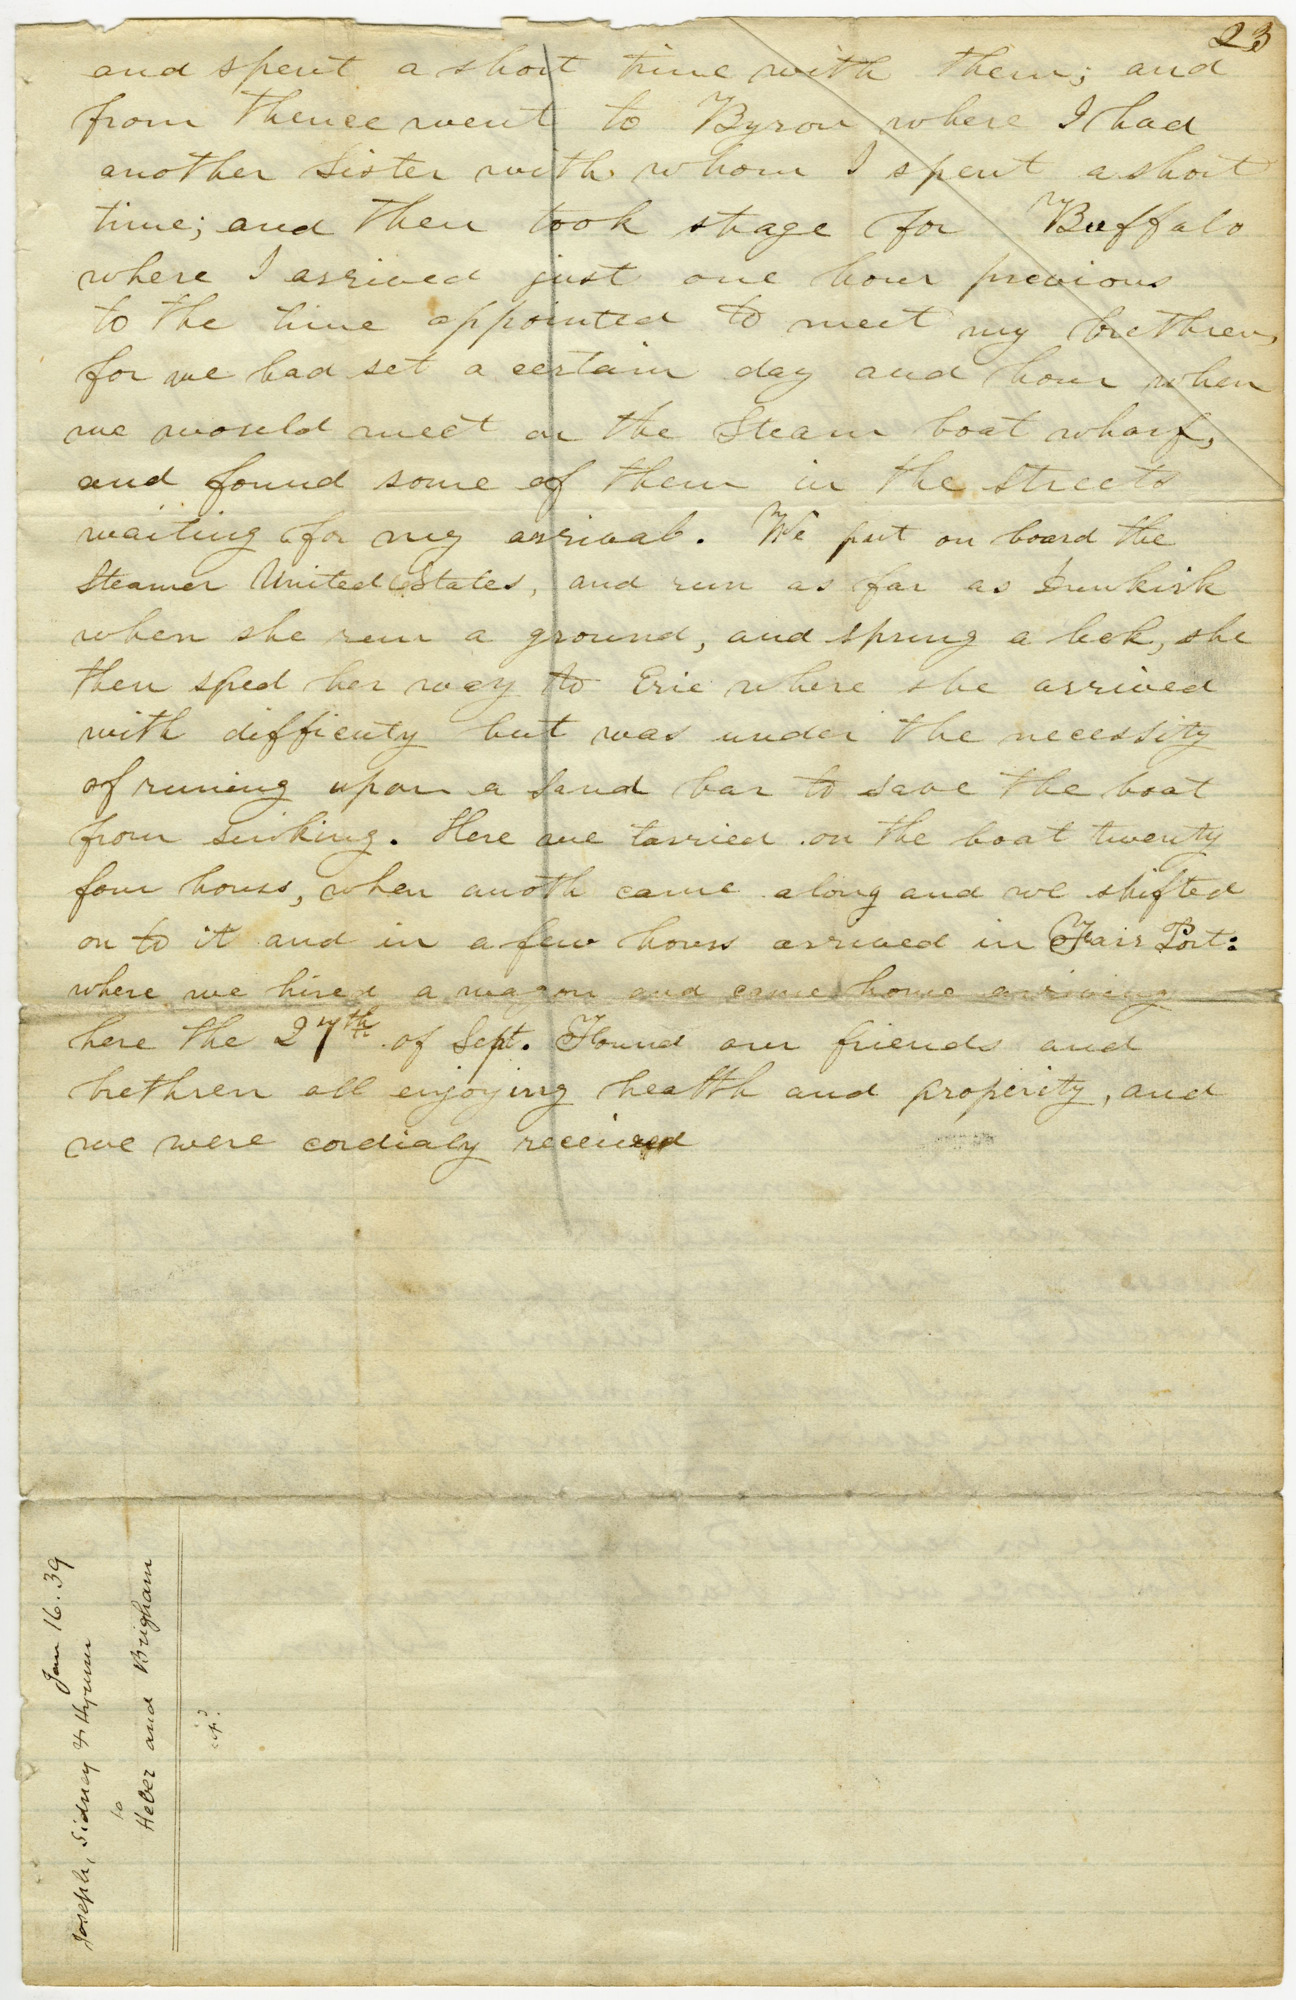 23
and spent a short time with them; and
from thence went to Byron where I had
another Sister with whom I spent a short
time; and then took stage for Buffalo
where I arrived just one hour previous
to the time appointed to meet my brethren,
for we had set a certain day and hour when
we would meet on the Steam boat wharf,
and found some of them in the Streets
waiting for my arrival. We put on board the
Steamer United States, and run as far as Dunkirk
when she run a ground, and sprung a leek, she
then sped her way to Erie where she arrived
with difficuty but was under the necessity
of runing upon a Sand bar to save the boat
from sinking. Here we tarried on the boat twenty
four hours, when anoth came along and we shifted
on to it and in a few hours arrived in Fair Port:
where we hired a wagon and came home arriving
here the 27th of Sept. Found our friends and
brethren all enjoying health and properity, and
we were cordialy received
Jan 16. 39
Joseph, Sidney & Hyrum
to
Heber and Brigham